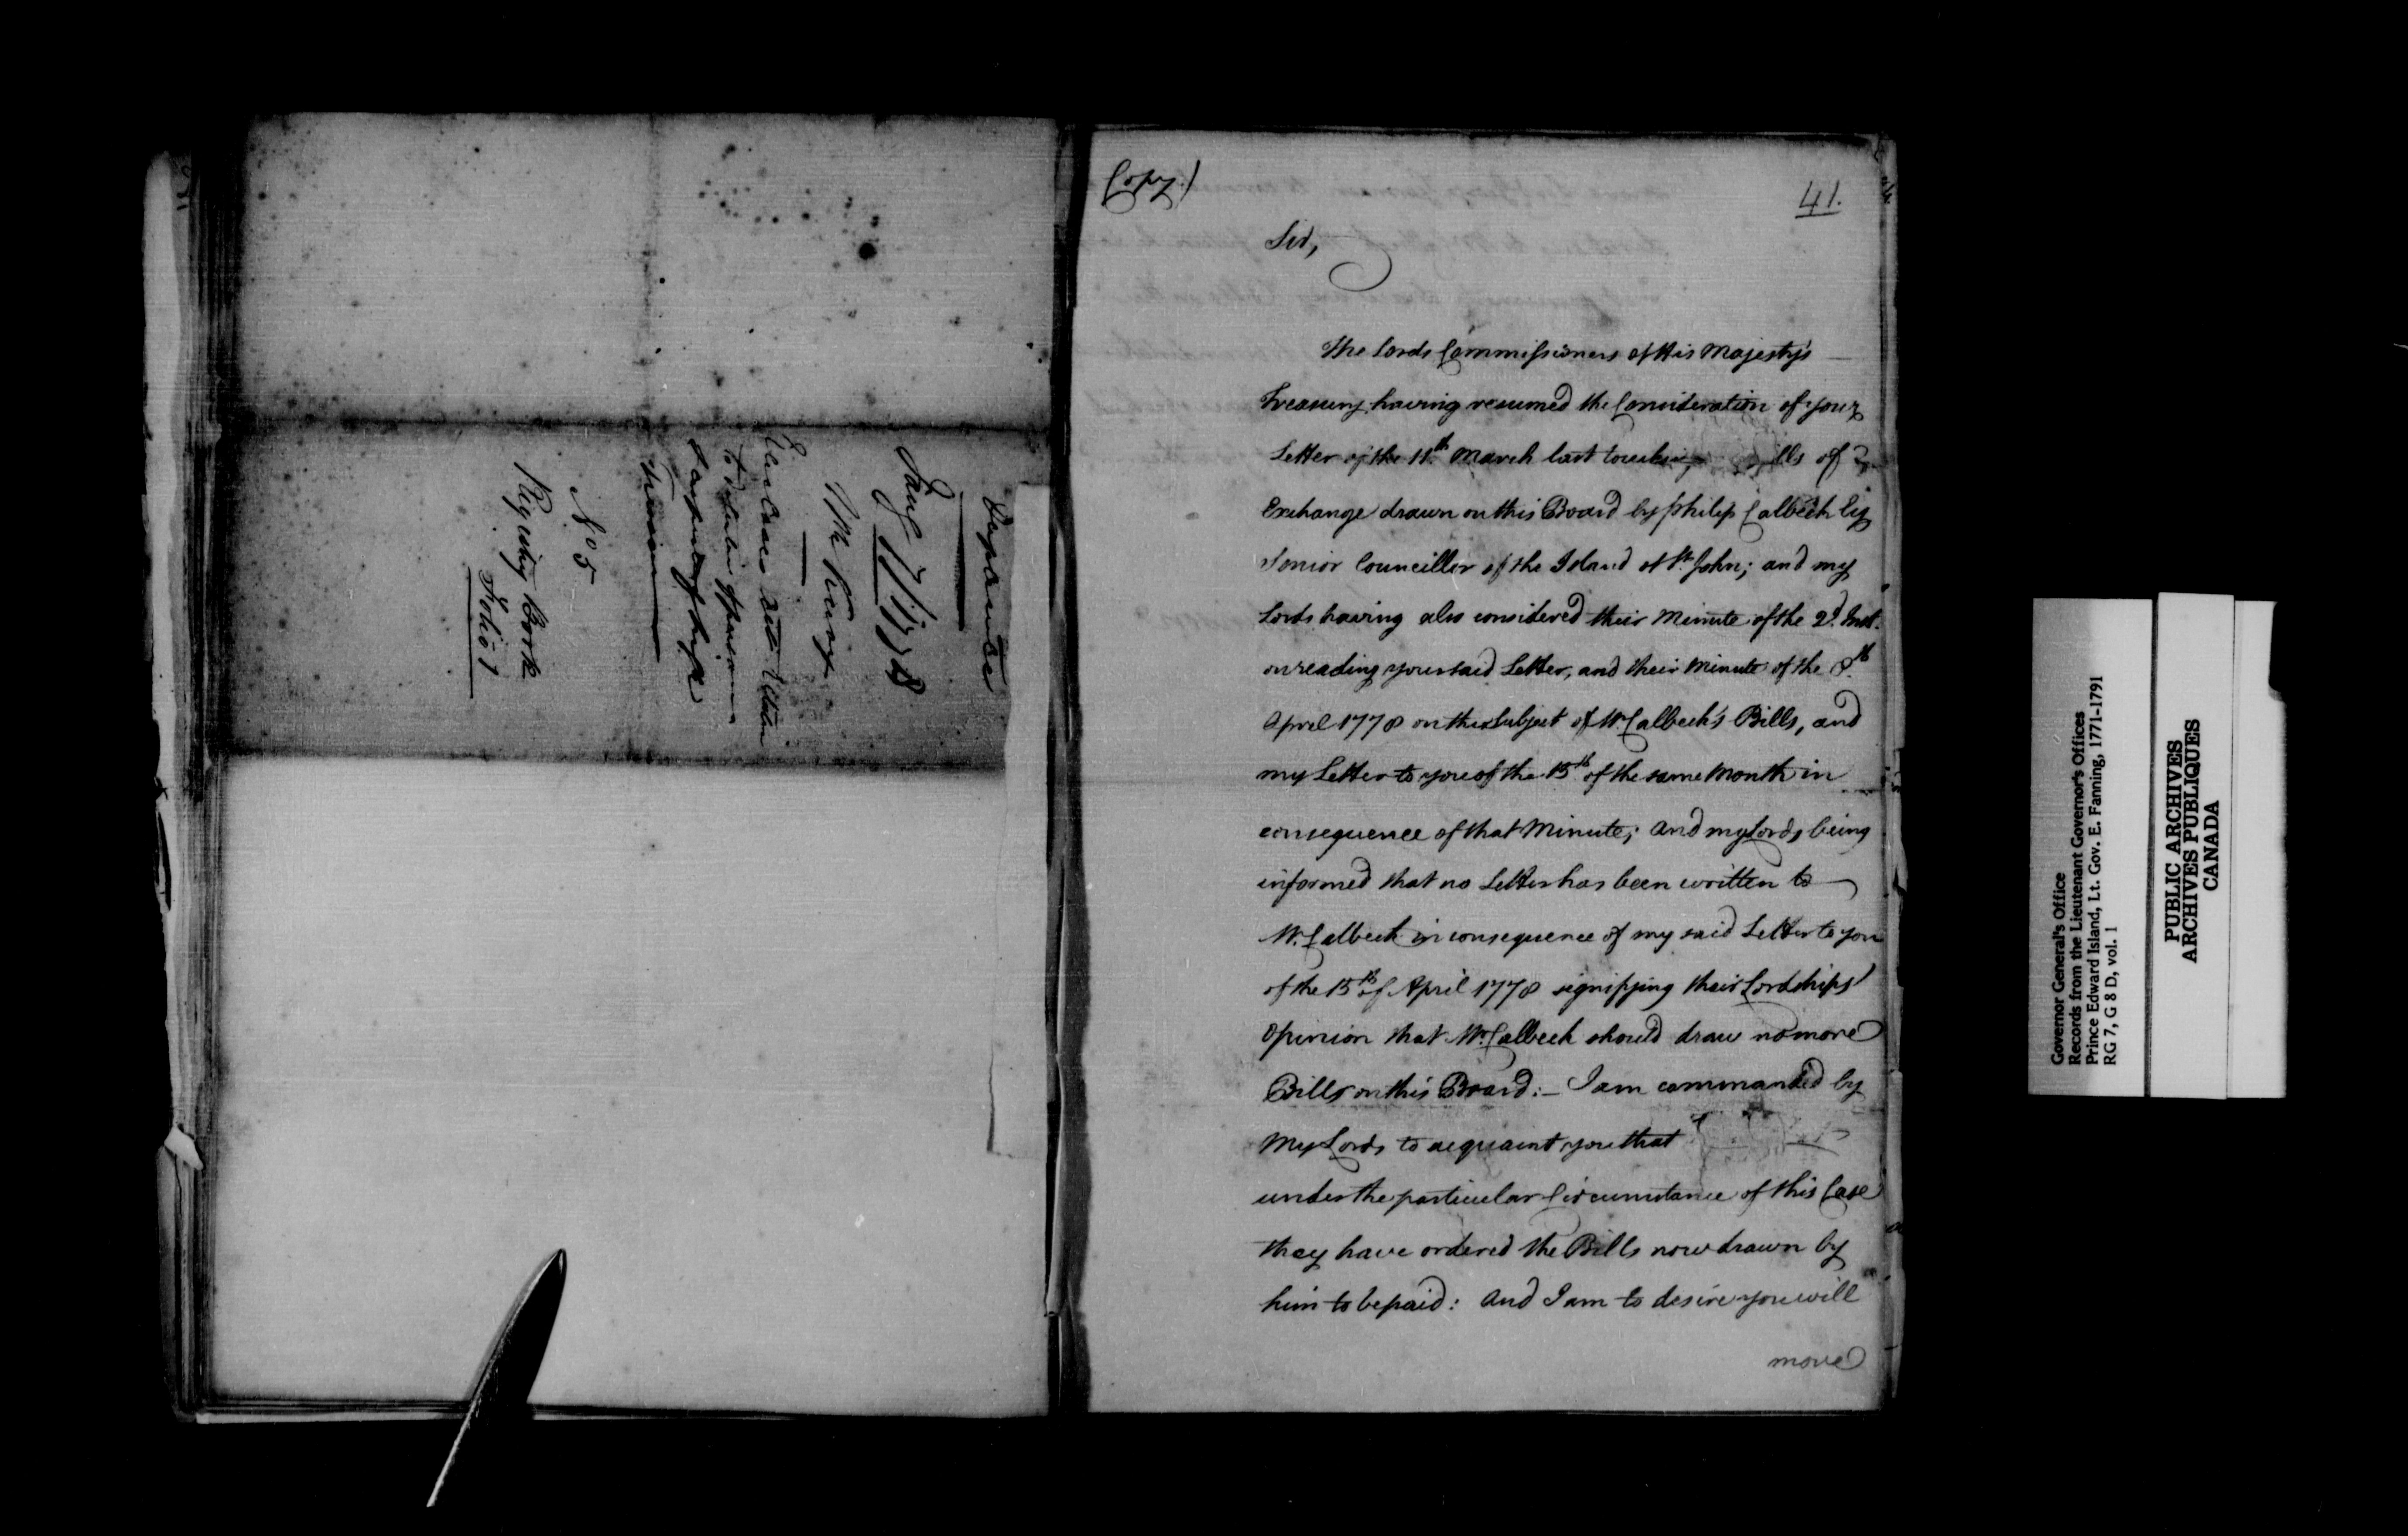 Duplicate
N.o 5
Registry Book
Folio 1
(Copy.)
41.
Sir,
The Lords Commissioners of His Majesty's
Treasury having resumed the Consideration of your
Letter of the 11.th March last touching lls of
Exchange drawn on this Board by Philip Callbeck Esq
Senior Councillor of the Island of S.t John; and my
Lords having also considered their Minute of the 2.d Inst.
on reading your said Letter, and their Minute of the 8.th
April 1778 on the Subject of Mr. Callbeck's Bills, and
my Letter to you of the 15.th of the same Month in
consequence of that Minute; and my Lords being
informed that no Letter has been written to
Mr. Callbeck in consequence of my said Letter to you
of the 15.th of April 1778 signifying their Lordships'
Opinion that Mr. Callbeck should draw no more
Bills on this Board:- I am commanded by
My Lords to acquaint you that
under the particular Circumstance of this Case
they have ordered the Bills now drawn by
him to be paid: And I am to desire you will
move
Governor General's Office
Records from the Lieutenant Governor's Offices
Prince Edward Island, Lt. Gov. E. Fanning, 1771-1791
RG 7, G 8 D, vol. 1
PUBLIC ARCHIVES
ARCHIVES PUBLIQUES
CANADA